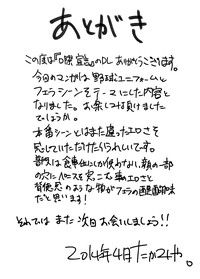 あとがき
この度は『 宣言』のDLありがとうございます。
今回のマンガは野球ユニフォームと
フェラシーンをテーマにした内容と
なりました。お楽しみ頂けました
でしょうか。
本番シーンとはまた違ったエロさを
感じていただけたらうれしいです。
普段は食事位にしか使わない顔の一部
の穴に を 事のエロさと
背徳 のような物がフェラの醍醐味
だと思います!
それではまた次回お会いしましょう!!
2014年4日